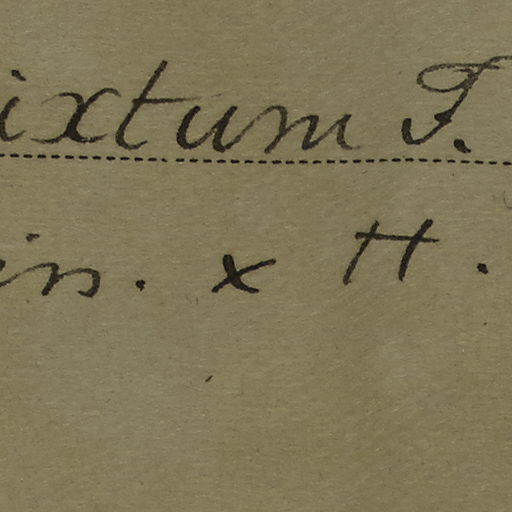 ixtum F.
in. x H.